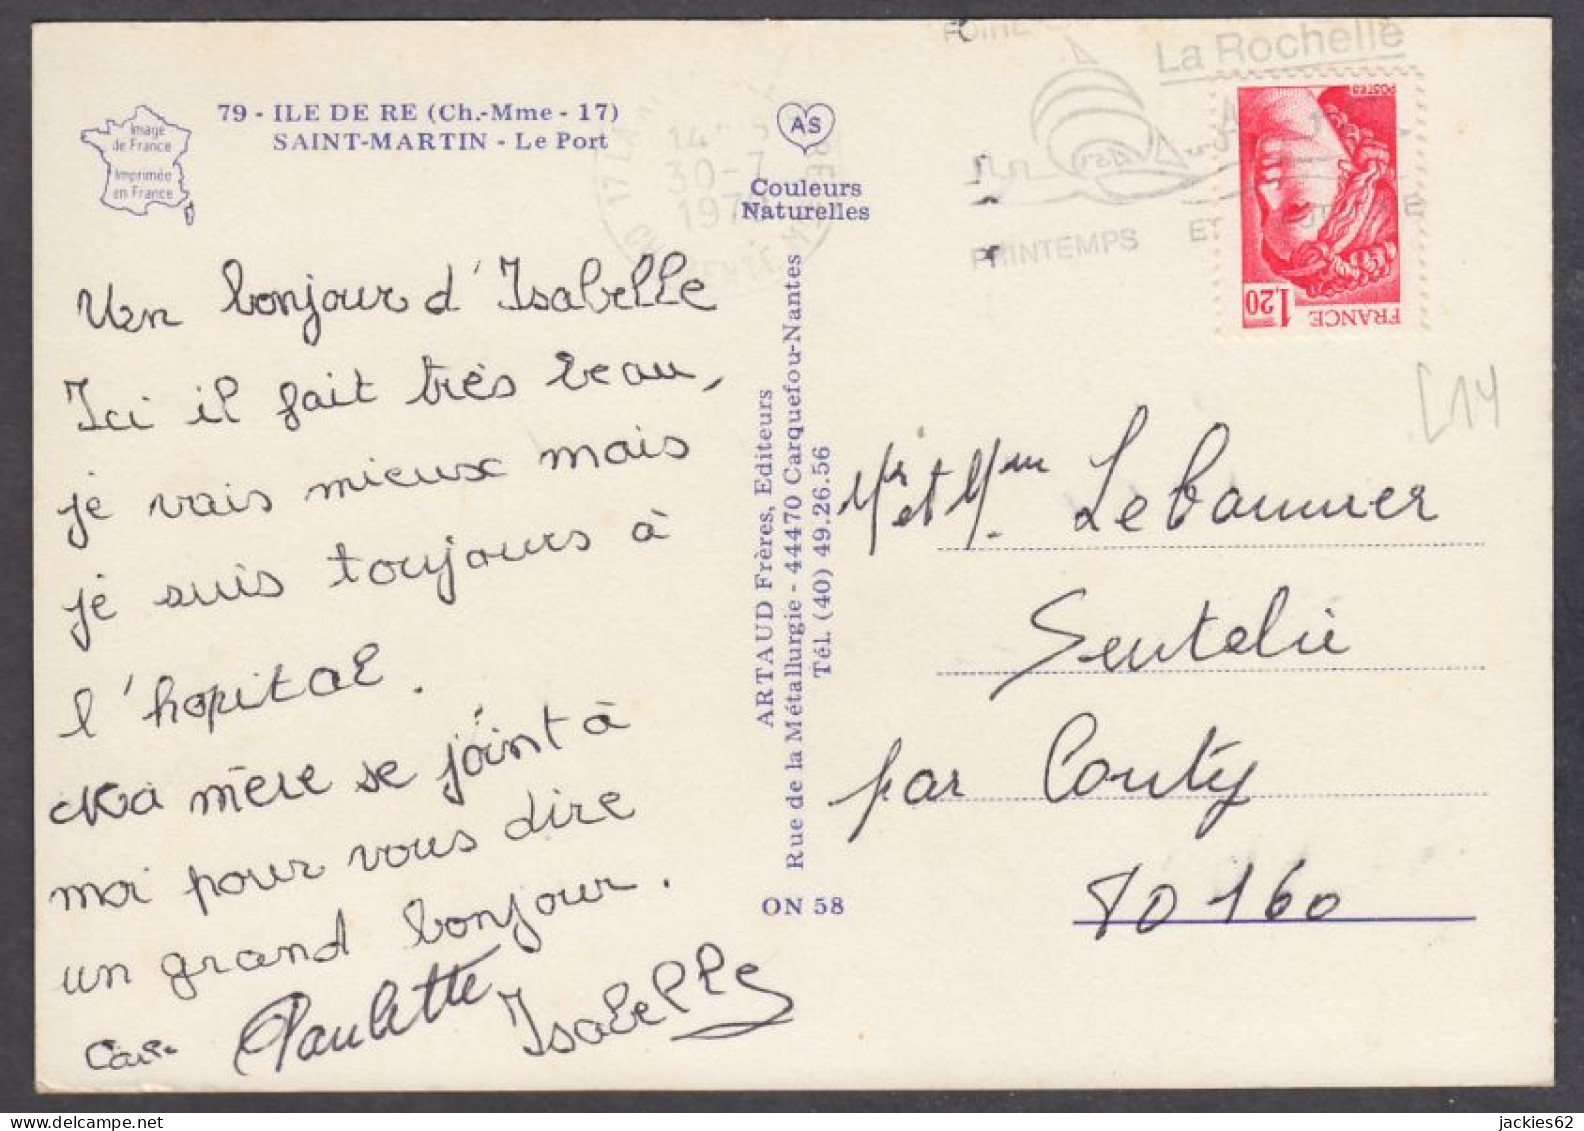 79 - ILE DE RE (Ch.-Mme - 17)
SAINT-MARTIN - Le Port
Image
de France
Imprimée
en France
AS
Couleurs
Naturelles
Un bonjour d'Isabelle
Ici il fait très beau,
je vais mieux mais
je suis toujours à
l'hopital.
Ma mère se joint à
moi pour vous dire
un grand bonjour.
Paulette Isabelle
ARTAUD Frères, Editeurs
Rue de la Métallurgie - 44470 Carquefou-Nantes
Tél. (40) 49.26.56
ON 58
30-7
La Rochelle
PRINTEMPS
POSTES
1,20
FRANCE
[14
Mr et Mme Lebanner
Sentelie
par Conty
80160
jackies62